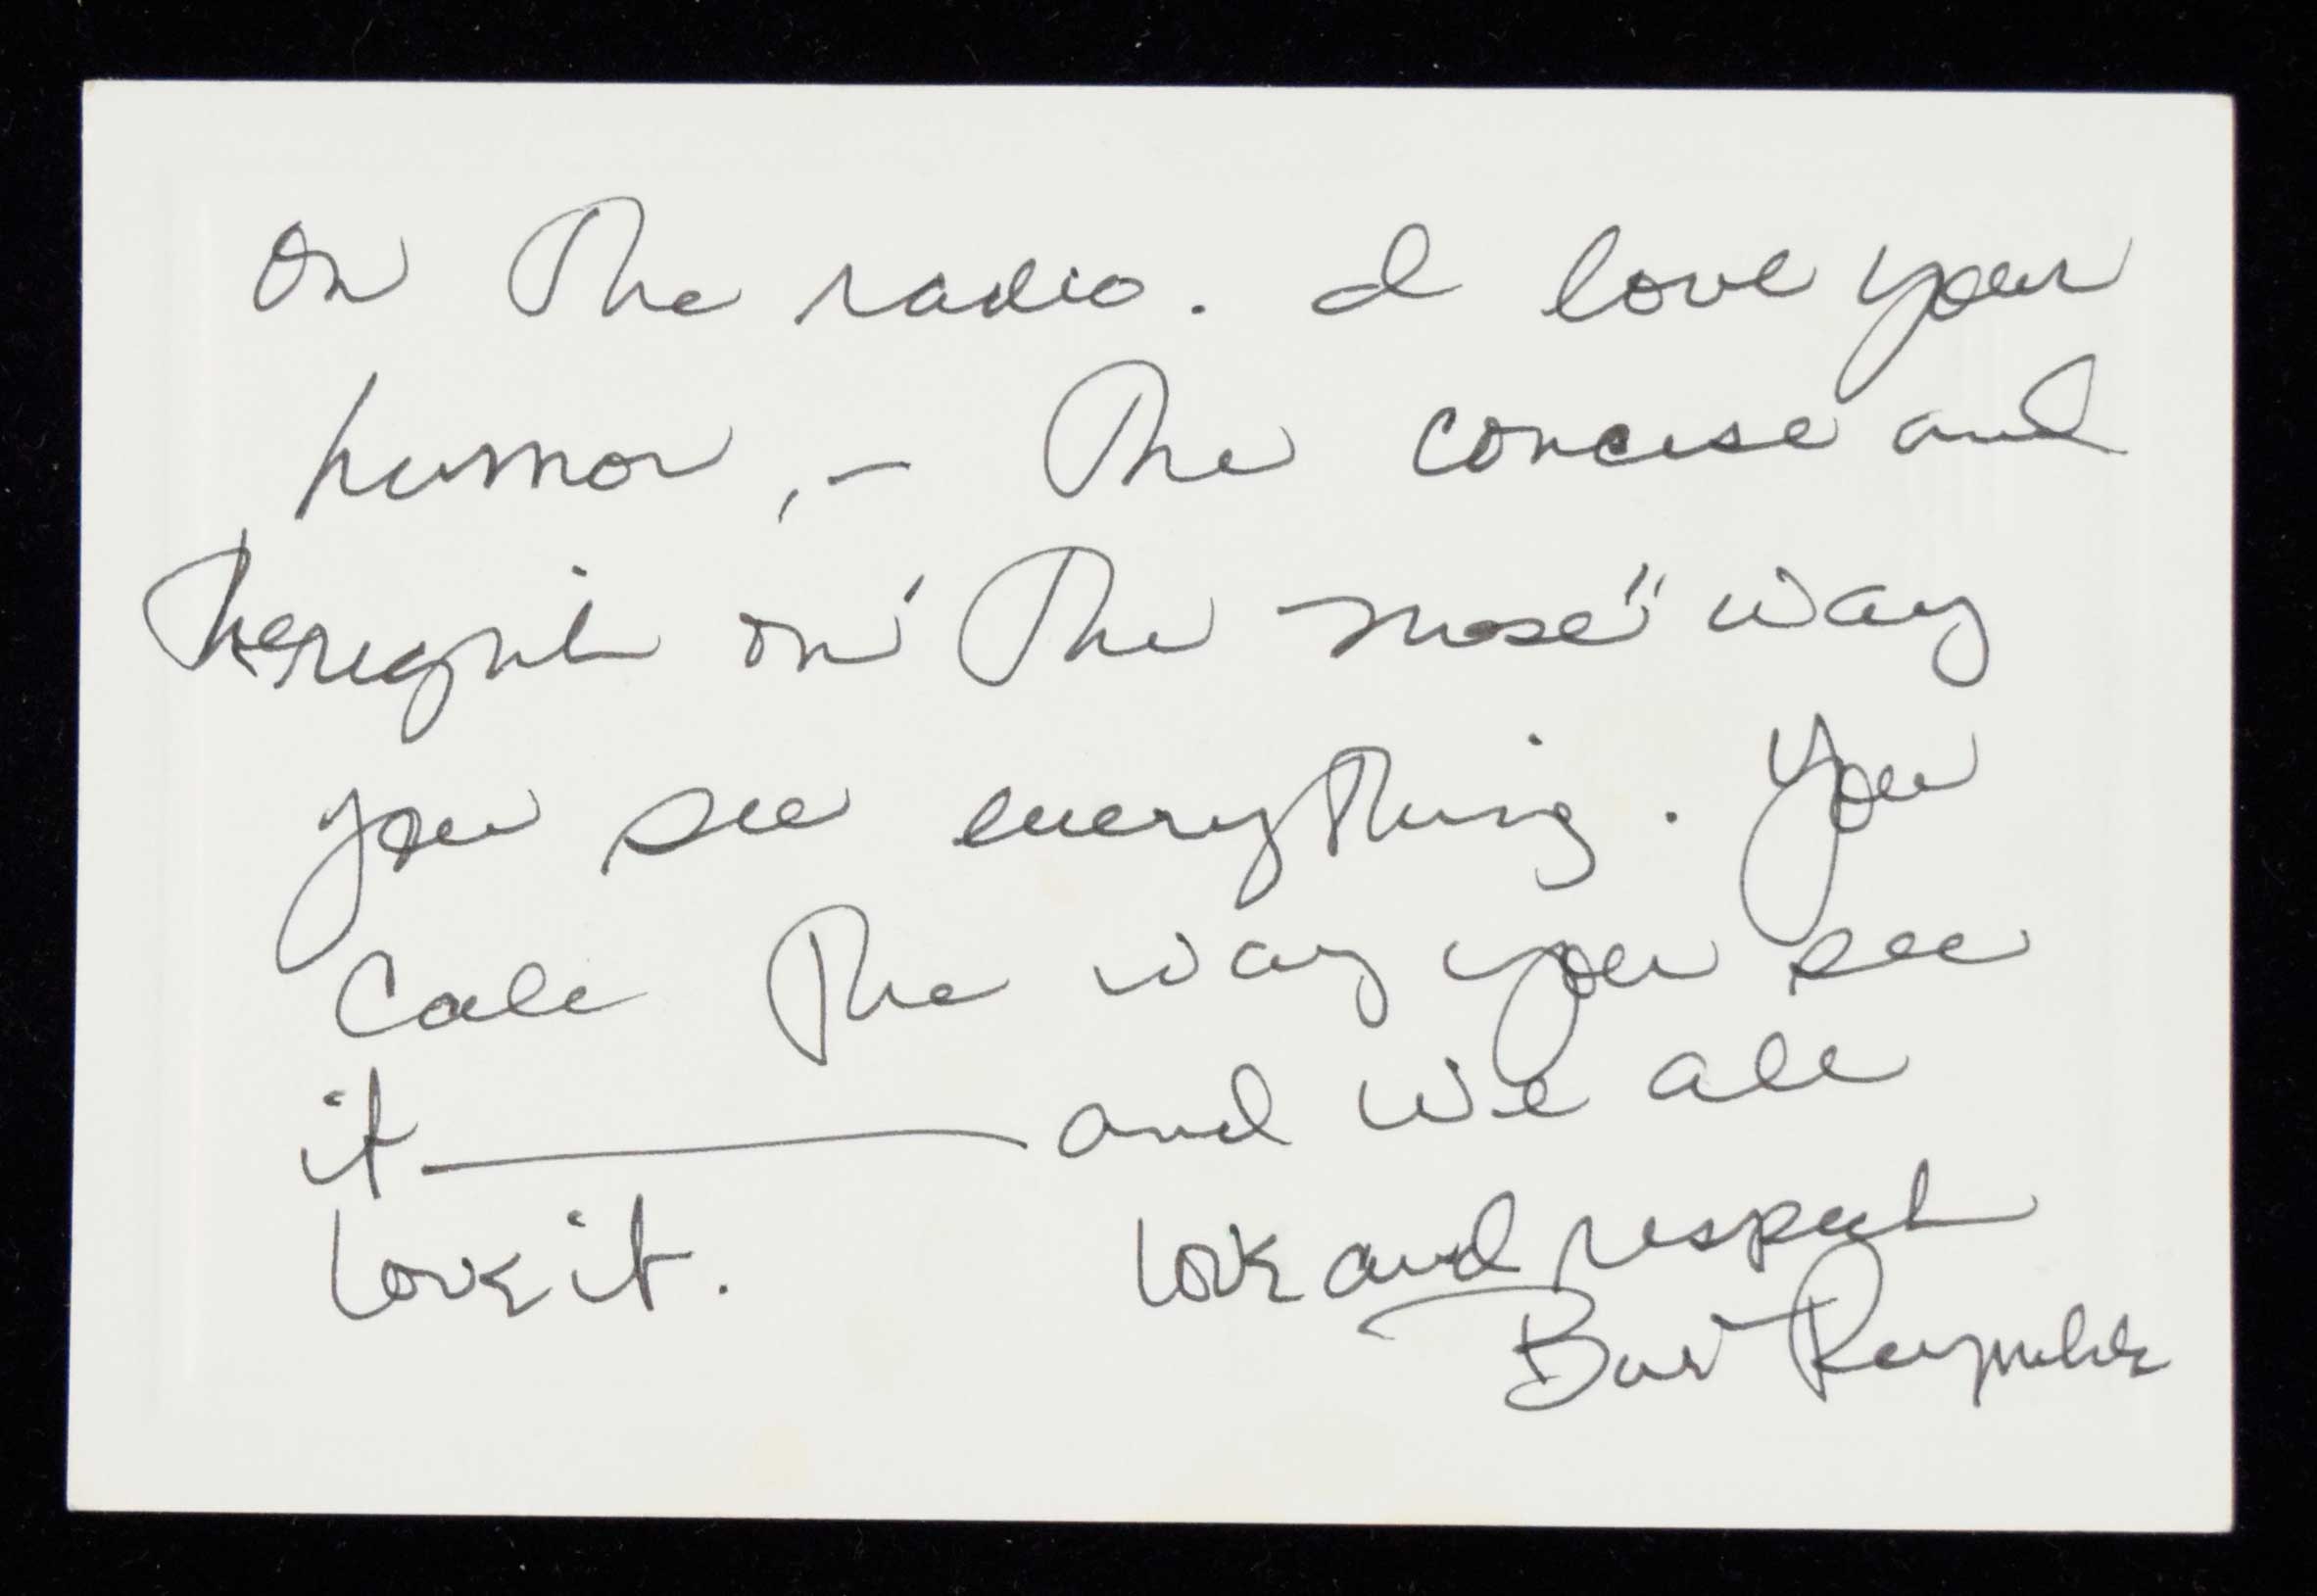 on The radio. I love your
humor, – The concise and
Theright on "The nose" way
you see everything. You
Call The way you see
it — and we all
Love it. Love and respect
Burt Reynolds